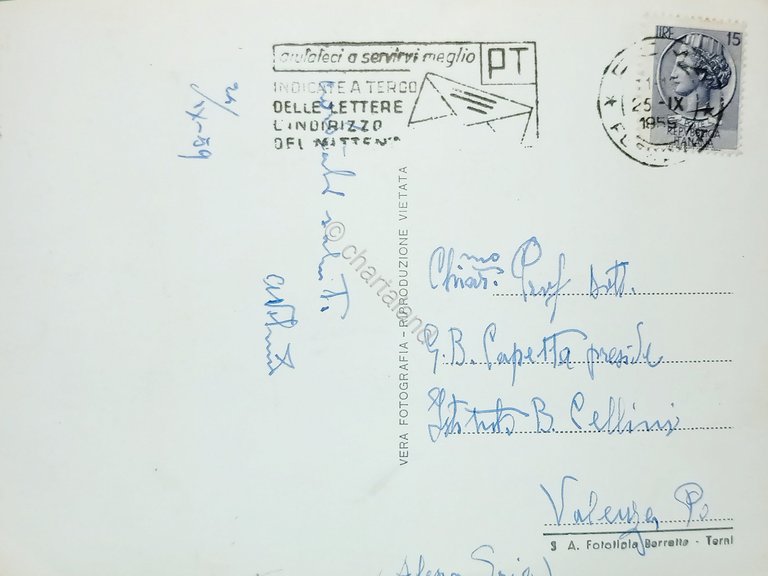 aiutateci a servirvi meglio
PT
INDICATE A TERGO
DELLE LETTERE
L'INDIRIZZO
DEL MITTENTE
LIRE 15
25-IX
REPUBBLICA
ITALIANA
24/IX-59
saluti
VERA FOTOGRAFIA - RIPRODUZIONE VIETATA
© chartaland
Chiar.mo Prof dott.
G. B. Capetta preside
Istituto B. Cellini
Valenza Po
S A. Fototipia Berretta - Terni